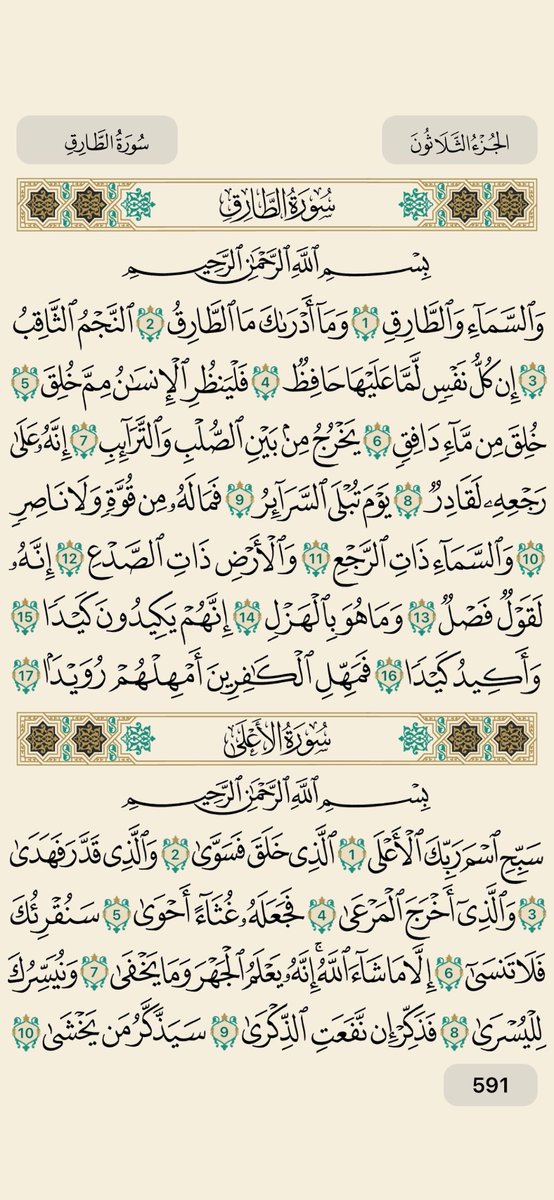 الجُزْءُ الثَّلَاثُونَ
سُورَةُ الطَّارِقِ
سُورَةُ الطَّارِقِ
بِسْمِ ٱللَّهِ ٱلرَّحْمَٰنِ ٱلرَّحِيمِ
وَٱلسَّمَآءِ وَٱلطَّارِقِ 1 وَمَآ أَدْرَىٰكَ مَا ٱلطَّارِقُ 2 ٱلنَّجْمُ ٱلثَّاقِبُ
3 إِن كُلُّ نَفْسٍ لَّمَّا عَلَيْهَا حَافِظٌ 4 فَلْيَنظُرِ ٱلْإِنسَٰنُ مِمَّ خُلِقَ 5
خُلِقَ مِن مَّآءٍ دَافِقٍ 6 يَخْرُجُ مِنۢ بَيْنِ ٱلصُّلْبِ وَٱلتَّرَآئِبِ 7 إِنَّهُۥ عَلَىٰ
رَجْعِهِۦ لَقَادِرٌ 8 يَوْمَ تُبْلَى ٱلسَّرَآئِرُ 9 فَمَا لَهُۥ مِن قُوَّةٍ وَلَا نَاصِرٍ
10 وَٱلسَّمَآءِ ذَاتِ ٱلرَّجْعِ 11 وَٱلْأَرْضِ ذَاتِ ٱلصَّدْعِ 12 إِنَّهُۥ
لَقَوْلٌ فَصْلٌ 13 وَمَا هُوَ بِٱلْهَزْلِ 14 إِنَّهُمْ يَكِيدُونَ كَيْدًا 15
وَأَكِيدُ كَيْدًا 16 فَمَهِّلِ ٱلْكَٰفِرِينَ أَمْهِلْهُمْ رُوَيْدًۢا 17
سُورَةُ الأَعْلَىٰ
بِسْمِ ٱللَّهِ ٱلرَّحْمَٰنِ ٱلرَّحِيمِ
سَبِّحِ ٱسْمَ رَبِّكَ ٱلْأَعْلَى 1 ٱلَّذِى خَلَقَ فَسَوَّىٰ 2 وَٱلَّذِى قَدَّرَ فَهَدَىٰ
3 وَٱلَّذِىٓ أَخْرَجَ ٱلْمَرْعَىٰ 4 فَجَعَلَهُۥ غُثَآءً أَحْوَىٰ 5 سَنُقْرِئُكَ
فَلَا تَنسَىٰٓ 6 إِلَّا مَا شَآءَ ٱللَّهُ ۚ إِنَّهُۥ يَعْلَمُ ٱلْجَهْرَ وَمَا يَخْفَىٰ 7 وَنُيَسِّرُكَ
لِلْيُسْرَىٰ 8 فَذَكِّرْ إِن نَّفَعَتِ ٱلذِّكْرَىٰ 9 سَيَذَّكَّرُ مَن يَخْشَىٰ 10
591